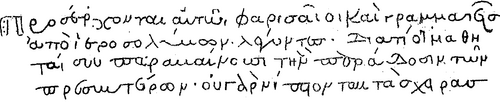 Προσέρχονται αὐτῶ, φαρισαῖοι καὶ γραμματεῖς
ἀπὸ ἱεροσολύμων. λέγοντες. Διατί οἱ μαθη
ταί σου παραβαίνουσι τὴν παράδοσιν τῶν
πρεσβυτέρων. οὐ γὰρ νίπτονται τὰς χεῖρας